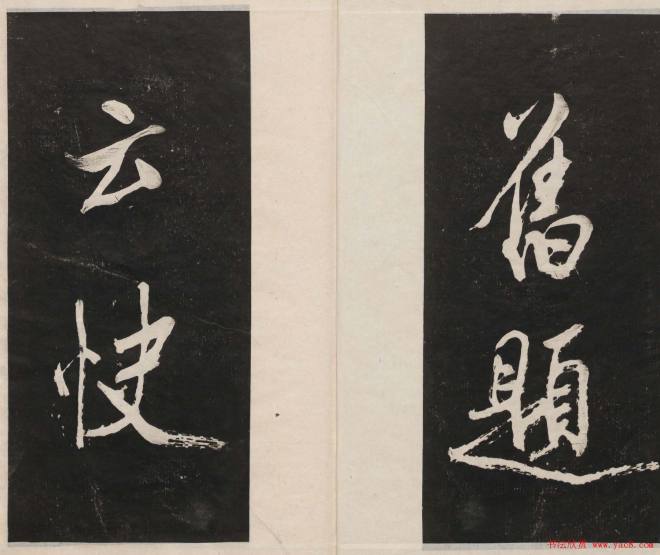 舊題
云快
书法欣赏 www.yac8.com